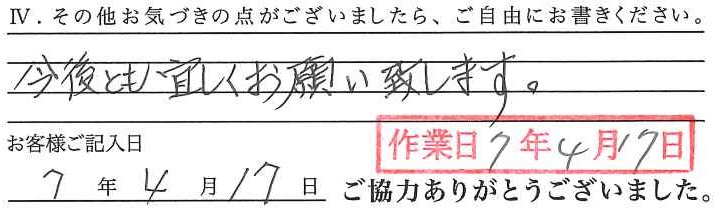 Ⅳ．その他お気づきの点がございましたら、ご自由にお書きください。
今後とも宜しくお願い致します。
お客様ご記入日
作業日 7年4月17日
7年4月17日
ご協力ありがとうございました。